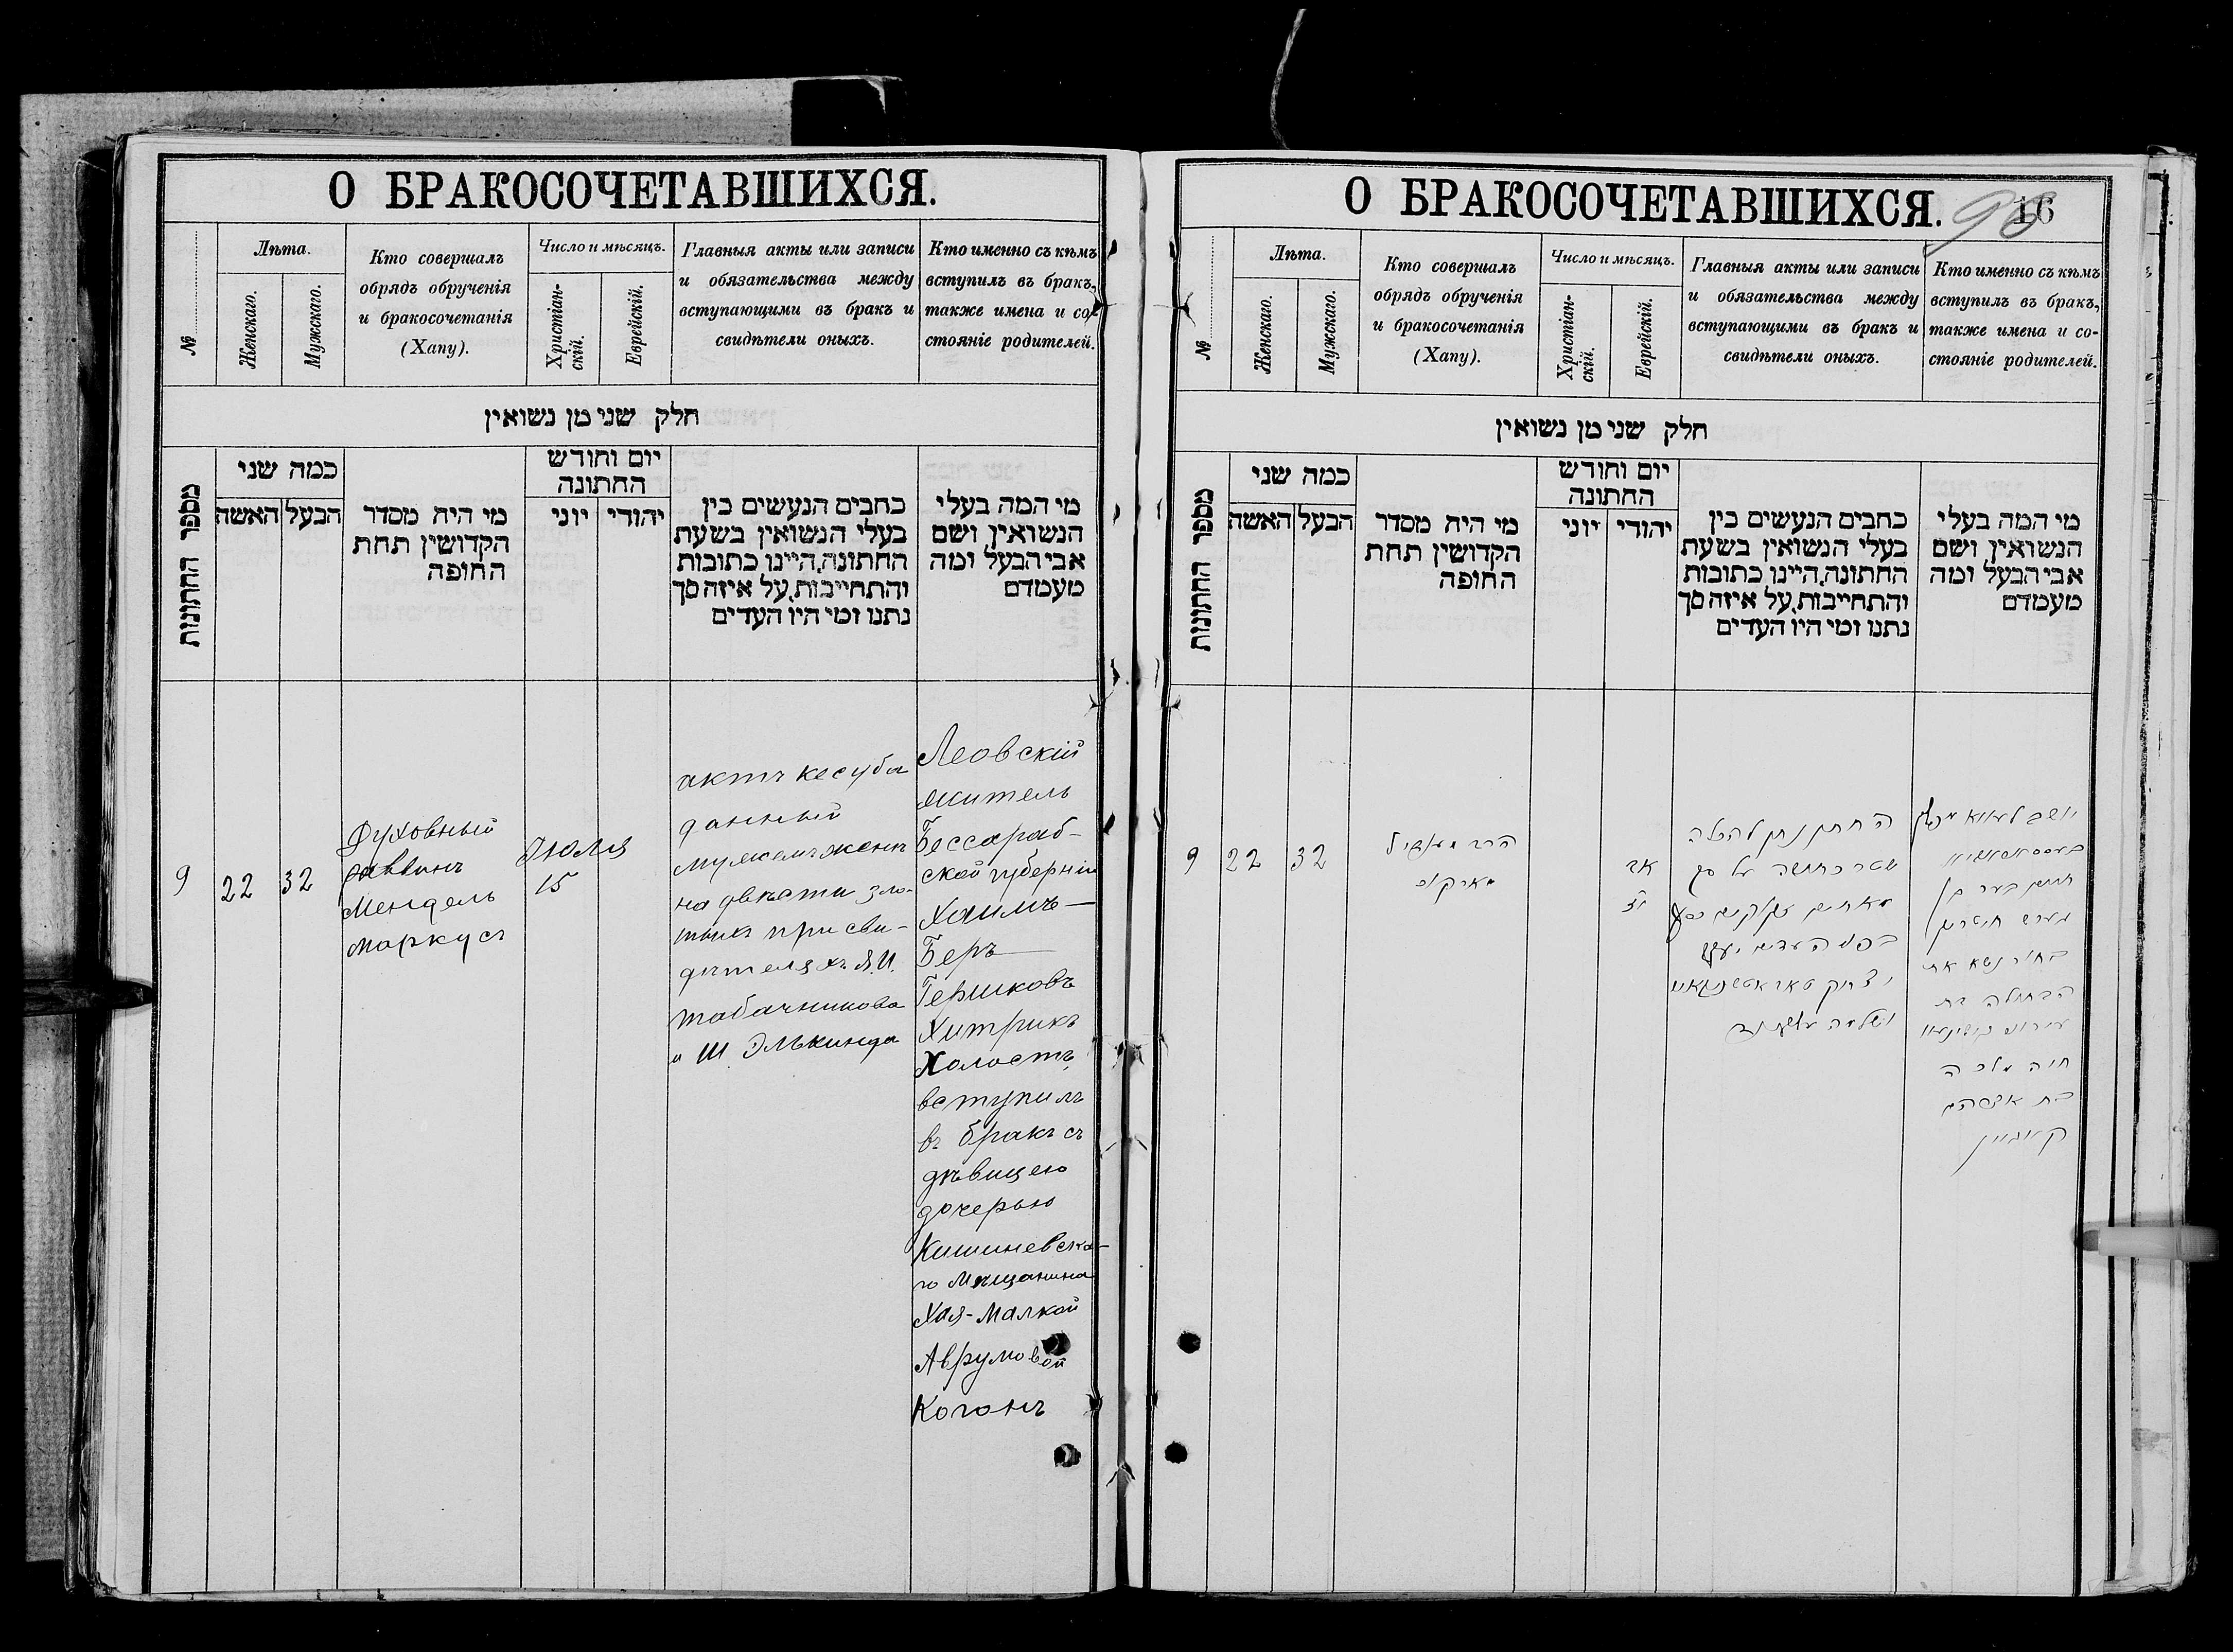 О БРАКОСОЧЕТАВШИХСЯ.
№
Лѣта.
Женскаго.
Мужскаго.
Кто совершалъ
обрядъ обрученія
и бракосочетанія
(Хапу).
Число и мѣсяцъ.
Христіан-
скій.
Еврейскій.
Главныя акты или записи
и обязательства между
вступающими въ бракъ и
свидѣтели оныхъ.
Кто именно съ кѣмъ
вступилъ въ бракъ,
также имена и со-
стояніе родителей.
חלק שני מן נשואין
מספר החתונות
כמה שני
האשה
הבעל
מי היה מסדר
הקדושין תחת
החופה
יום וחודש
החתונה
יוני
יהודי
כתבים הנעשים בין
בעלי הנשואין בשעת
החתונה, היינו כתובות
והתחייבות, על איזה סך
נתנו ומי היו העדים
מי המה בעלי
הנשואין ושם
אבי הבעל ומה
מעמדם
9
22
32
Духовный
раввинъ
Мендель
Маркусъ
Іюля
15
актъ кесуба
данный
мужемъ женѣ
на двѣсти зло-
тыхъ при сви-
дѣтеляхъ Я.И.
Табачникова
и Ш. Элькинда
Леовскій
житель
Бессараб-
ской губерніи
Хаимъ-
Беръ
Гершковъ
Хитрикъ
Холостъ,
вступилъ
въ бракъ съ
дѣвицею
дочерью
Кишиневска-
го Мѣщанина
Хая-Малкой
Аврумовой
Когонъ
О БРАКОСОЧЕТАВШИХСЯ.
16
№
Лѣта.
Женскаго.
Мужскаго.
Кто совершалъ
обрядъ обрученія
и бракосочетанія
(Хапу).
Число и мѣсяцъ.
Христіан-
скій.
Еврейскій.
Главныя акты или записи
и обязательства между
вступающими въ бракъ и
свидѣтели оныхъ.
Кто именно съ кѣмъ
вступилъ въ бракъ,
также имена и со-
стояніе родителей.
חלק שני מן נשואין
מספר החתונות
כמה שני
האשה
הבעל
מי היה מסדר
הקדושין תחת
החופה
יום וחודש
החתונה
יוני
יהודי
כתבים הנעשים בין
בעלי הנשואין בשעת
החתונה, היינו כתובות
והתחייבות, על איזה סך
נתנו ומי היו העדים
מי המה בעלי
הנשואין ושם
אבי הבעל ומה
מעמדם
9
22
32
הרב מענדיל
מארקוס
אב
החתן נתן להכלה
שטר כתובה על סך
מאתים זקוקים כסף
בפני העדים
יצחק
ושלמה
יושב לעווא
חיים בער בן
הערש חיטריק
בחור נשא את
הבתולה בת
חיה מלכה
בת אברהם
קאגאן